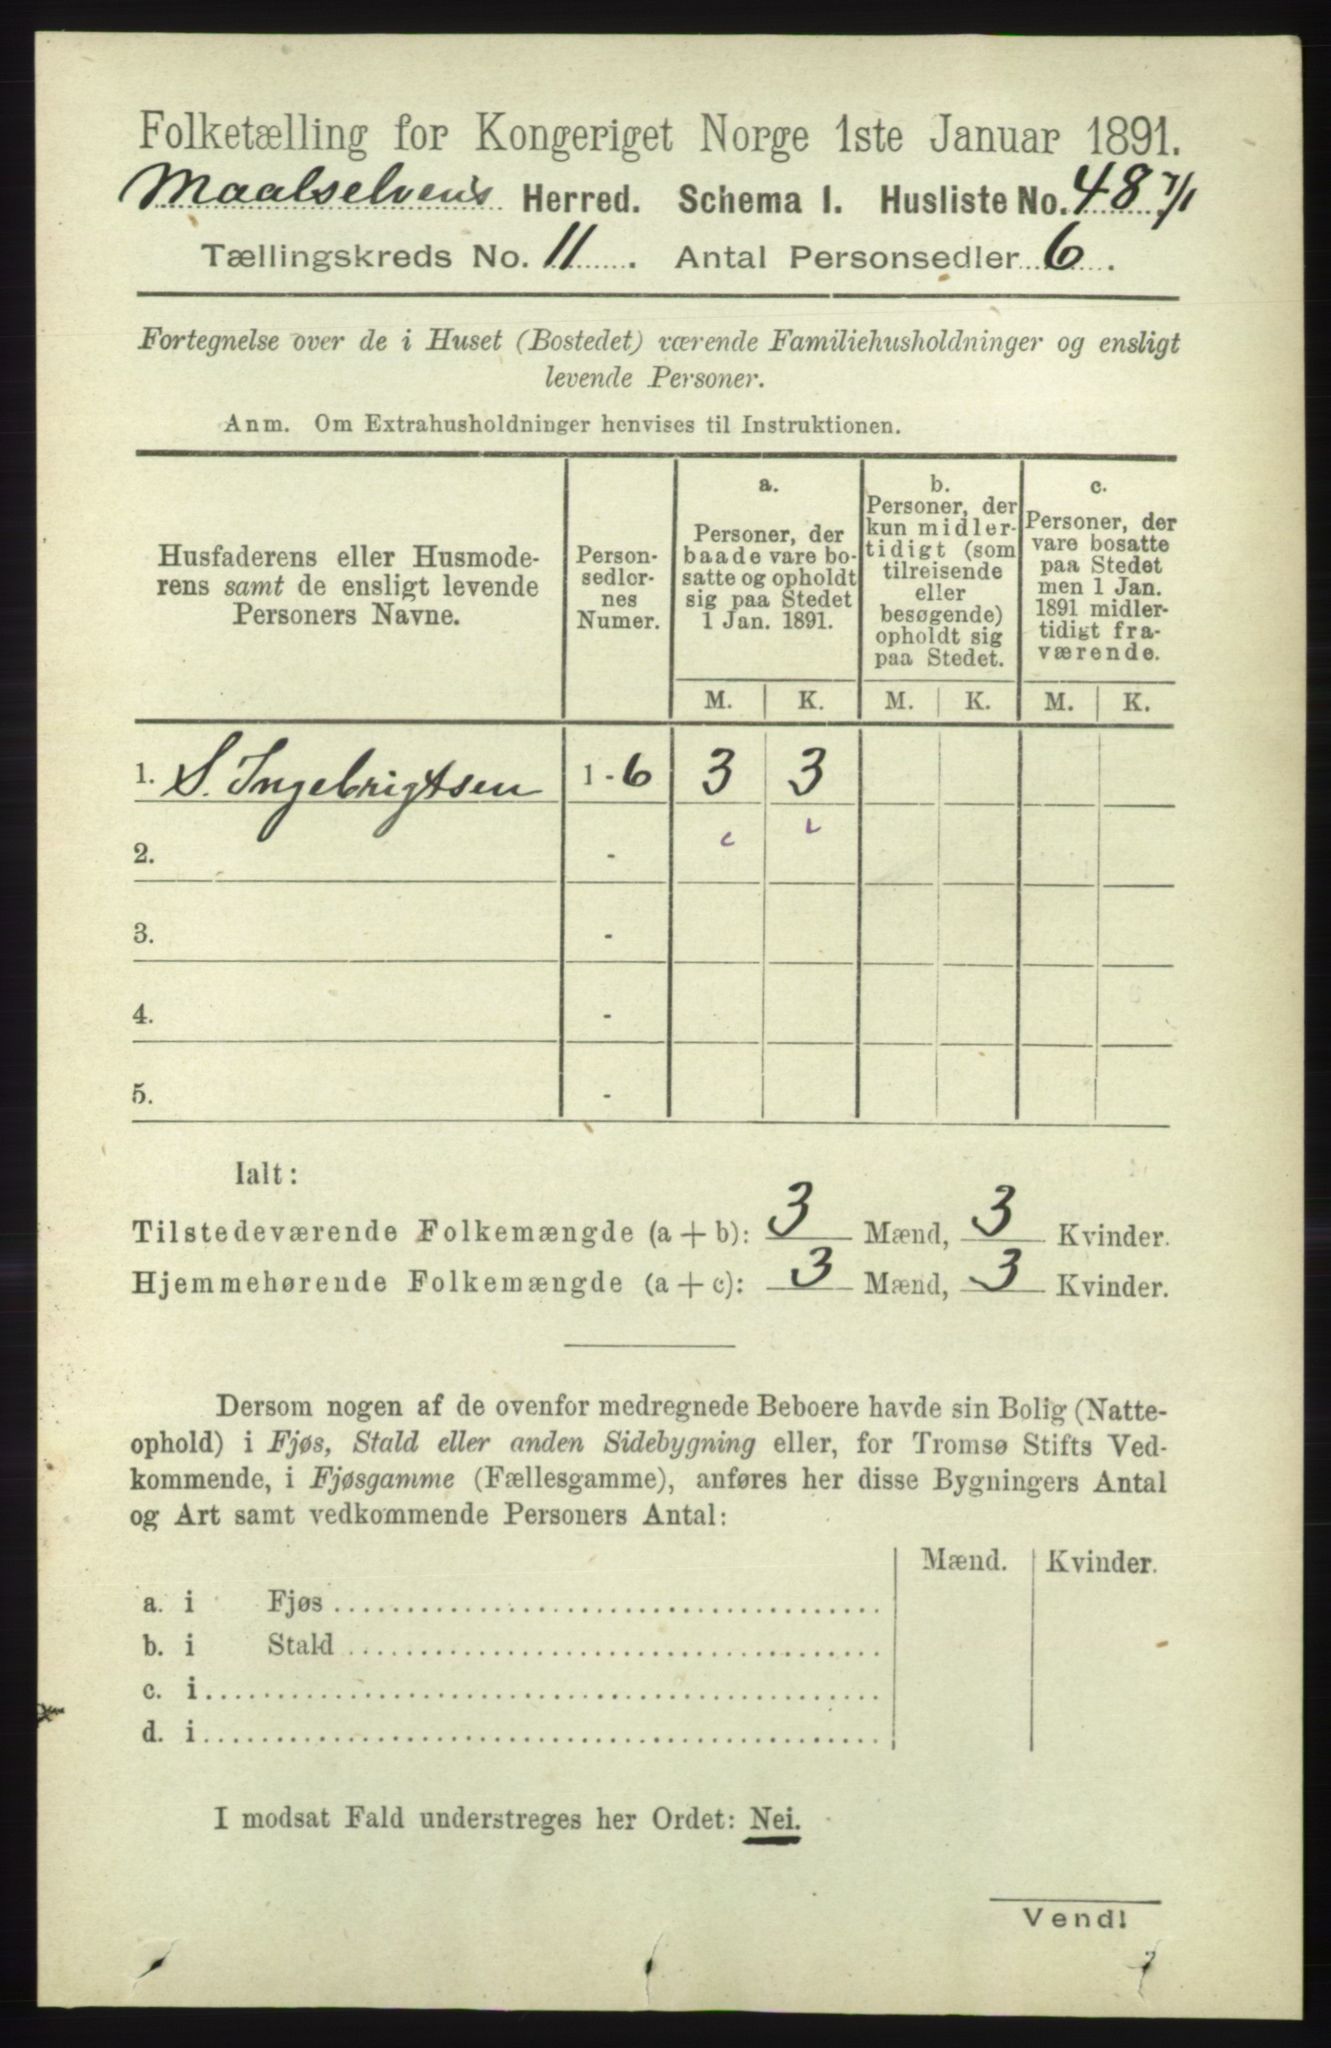 Folketælling for Kongeriget Norge 1ste Januar 1891.
Maalselvens Herred. Schema I. Husliste No. 48 7/1
Tællingskreds No. 11 . Antal Personsedler 6 .
Fortegnelse over de i Huset (Bostedet) værende Familiehusholdninger og ensligt
levende Personer.
Anm. Om Extrahusholdninger henvises til Instruktionen.
Husfaderens eller Husmode-
rens samt de ensligt levende
Personers Navne.
Person-
sedler-
nes
Numer.
a.
Personer, der
baade vare bo-
satte og opholdt
sig paa Stedet
1 Jan. 1891.
b.
Personer, der
kun midler-
tidigt (som
tilreisende
eller
besøgende)
opholdt sig
paa Stedet.
c.
Personer, der
vare bosatte
paa Stedet
men 1 Jan.
1891 midler-
tidigt fra-
værende.
M. K. M. K. M. K.
1. S. Ingebrigtsen 1 - 6 3 3
2. -
3. -
4. -
5. -
Ialt:
Tilstedeværende Folkemængde (a + b): 3 Mænd, 3 Kvinder.
Hjemmehørende Folkemængde (a + c): 3 Mænd, 3 Kvinder.
Dersom nogen af de ovenfor medregnede Beboere havde sin Bolig (Natte-
ophold) i Fjøs, Stald eller anden Sidebygning eller, for Tromsø Stifts Ved-
kommende, i Fjøsgamme (Fællesgamme), anføres her disse Bygningers Antal
og Art samt vedkommende Personers Antal:
Mænd. Kvinder.
a. i Fjøs
b. i Stald
c. i
d. i
I modsat Fald understreges her Ordet: Nei.
Vend!